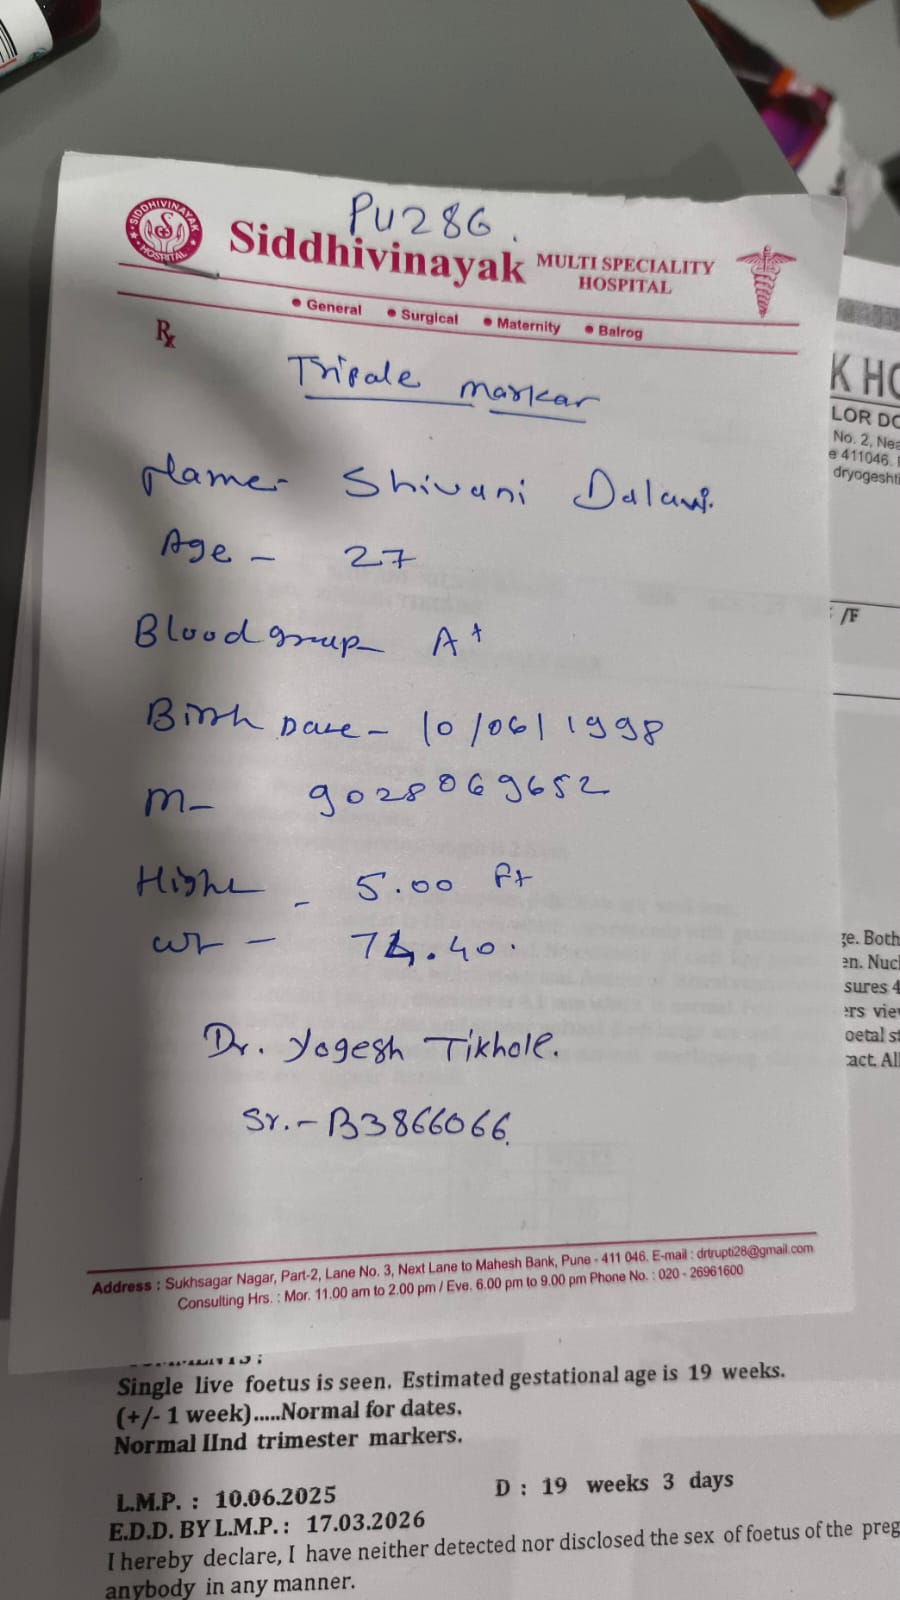 PU286.
SIDDHIVINAYAK
HOSPITAL
Siddhivinayak MULTI SPECIALITY
HOSPITAL
• General • Surgical • Maternity • Balrog
Rx
Tripale markar
Name- Shivani Dalavi.
Age - 27
Blood group - A+
Birth Date - 10/06/1998
M- 9028069652
Hight - 5.00 ft
wt - 74.40.
Dr. Yogesh Tikhole.
Sr.- B3866066.
Address : Sukhsagar Nagar, Part-2, Lane No. 3, Next Lane to Mahesh Bank, Pune - 411 046. E-mail : drtrupti28@gmail.com
Consulting Hrs. : Mor. 11.00 am to 2.00 pm / Eve. 6.00 pm to 9.00 pm Phone No. : 020 - 26961600
K HO
LOR DO
No. 2, Nea
e 411046.
dryogeshti
/F
ge. Both
en. Nucl
sures 4
ers view
oetal st
tact. All
Single live foetus is seen. Estimated gestational age is 19 weeks.
(+/- 1 week).....Normal for dates.
Normal IInd trimester markers.
L.M.P. : 10.06.2025 D : 19 weeks 3 days
E.D.D. BY L.M.P. : 17.03.2026
I hereby declare, I have neither detected nor disclosed the sex of foetus of the preg
anybody in any manner.